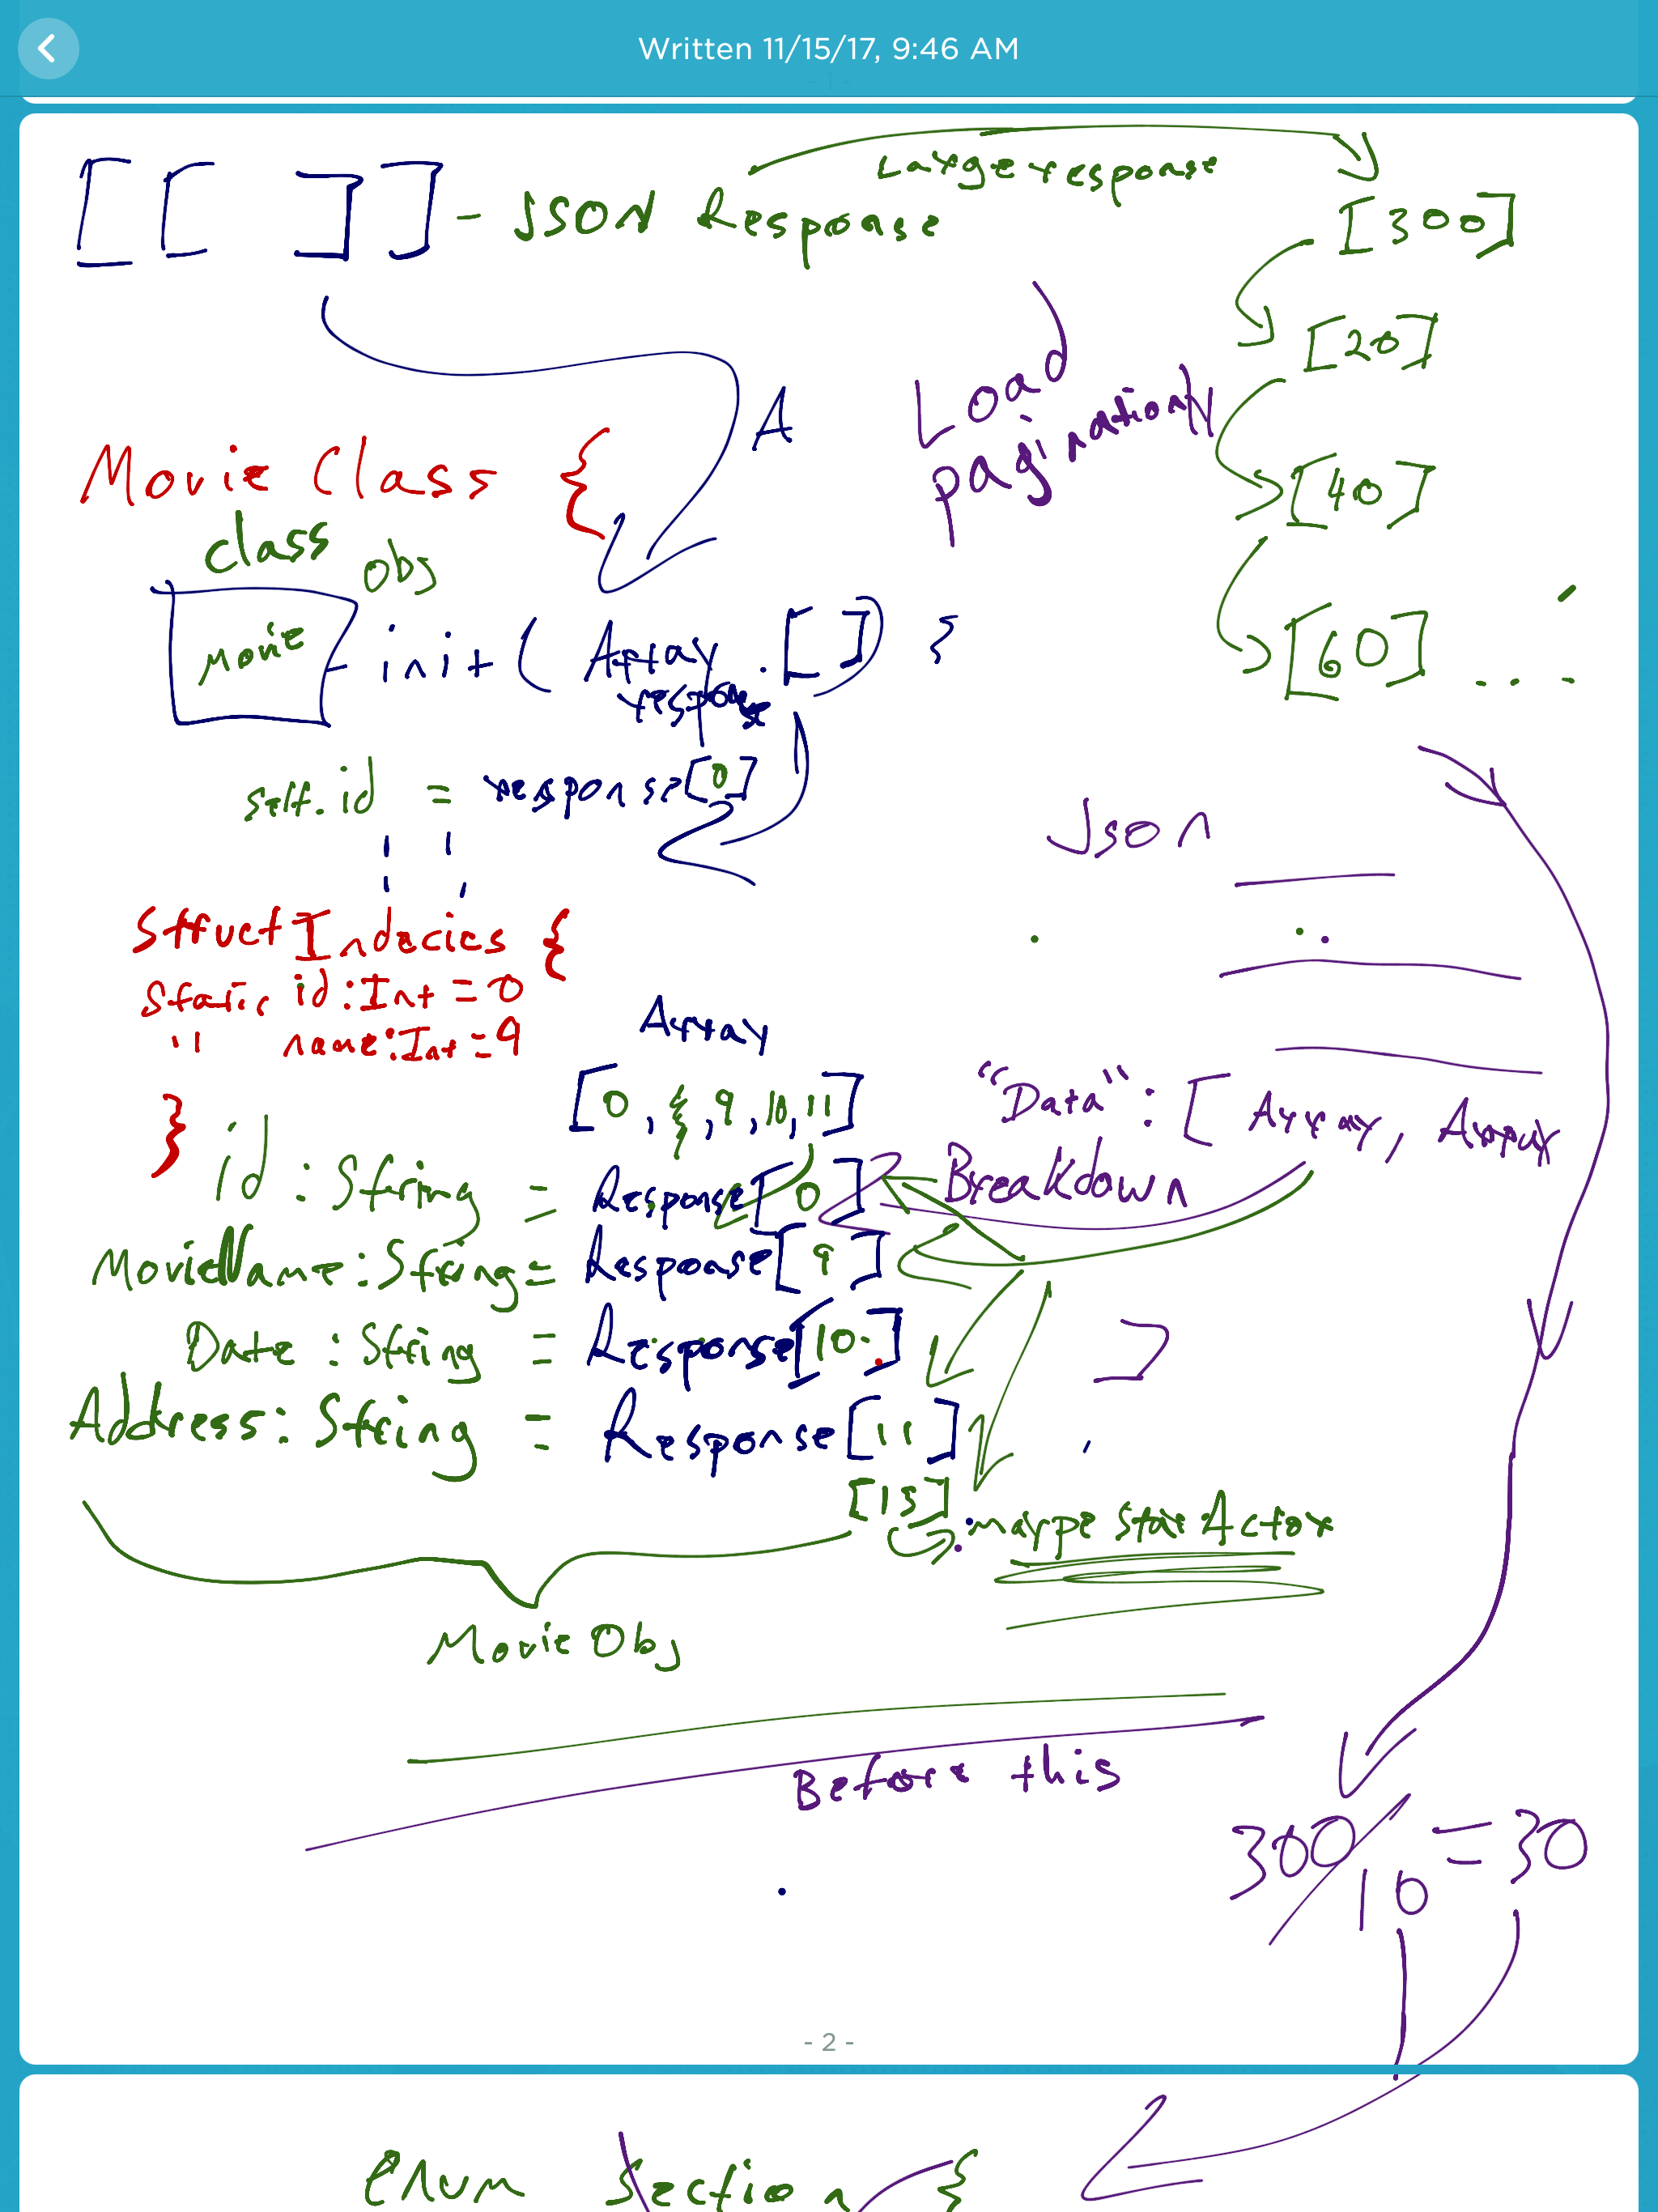 Written 11/15/17, 9:46 AM
Large response
[[ ]] - JSON Response
[300]
[20]
Load
pagination
A
Movie Class {
[40]
class
obj
Movie - init ( Array . [] ) {
response
[60] . . . .
self.id = response[0]
Json
Struct Indecies {
static id:Int = 0
" name:Int = 9
}
Array
[0, {, 9, 10, 11]
"Data" : [ Array, Array
Breakdown
id : String = Response[0]
MovieName : String = Response[9]
Date : String = Response[10]
]
Address : String = Response[11]
,
[15]
maype star Actor
Movie Obj
Before this
300/10 = 30
- 2 -
enum Section {